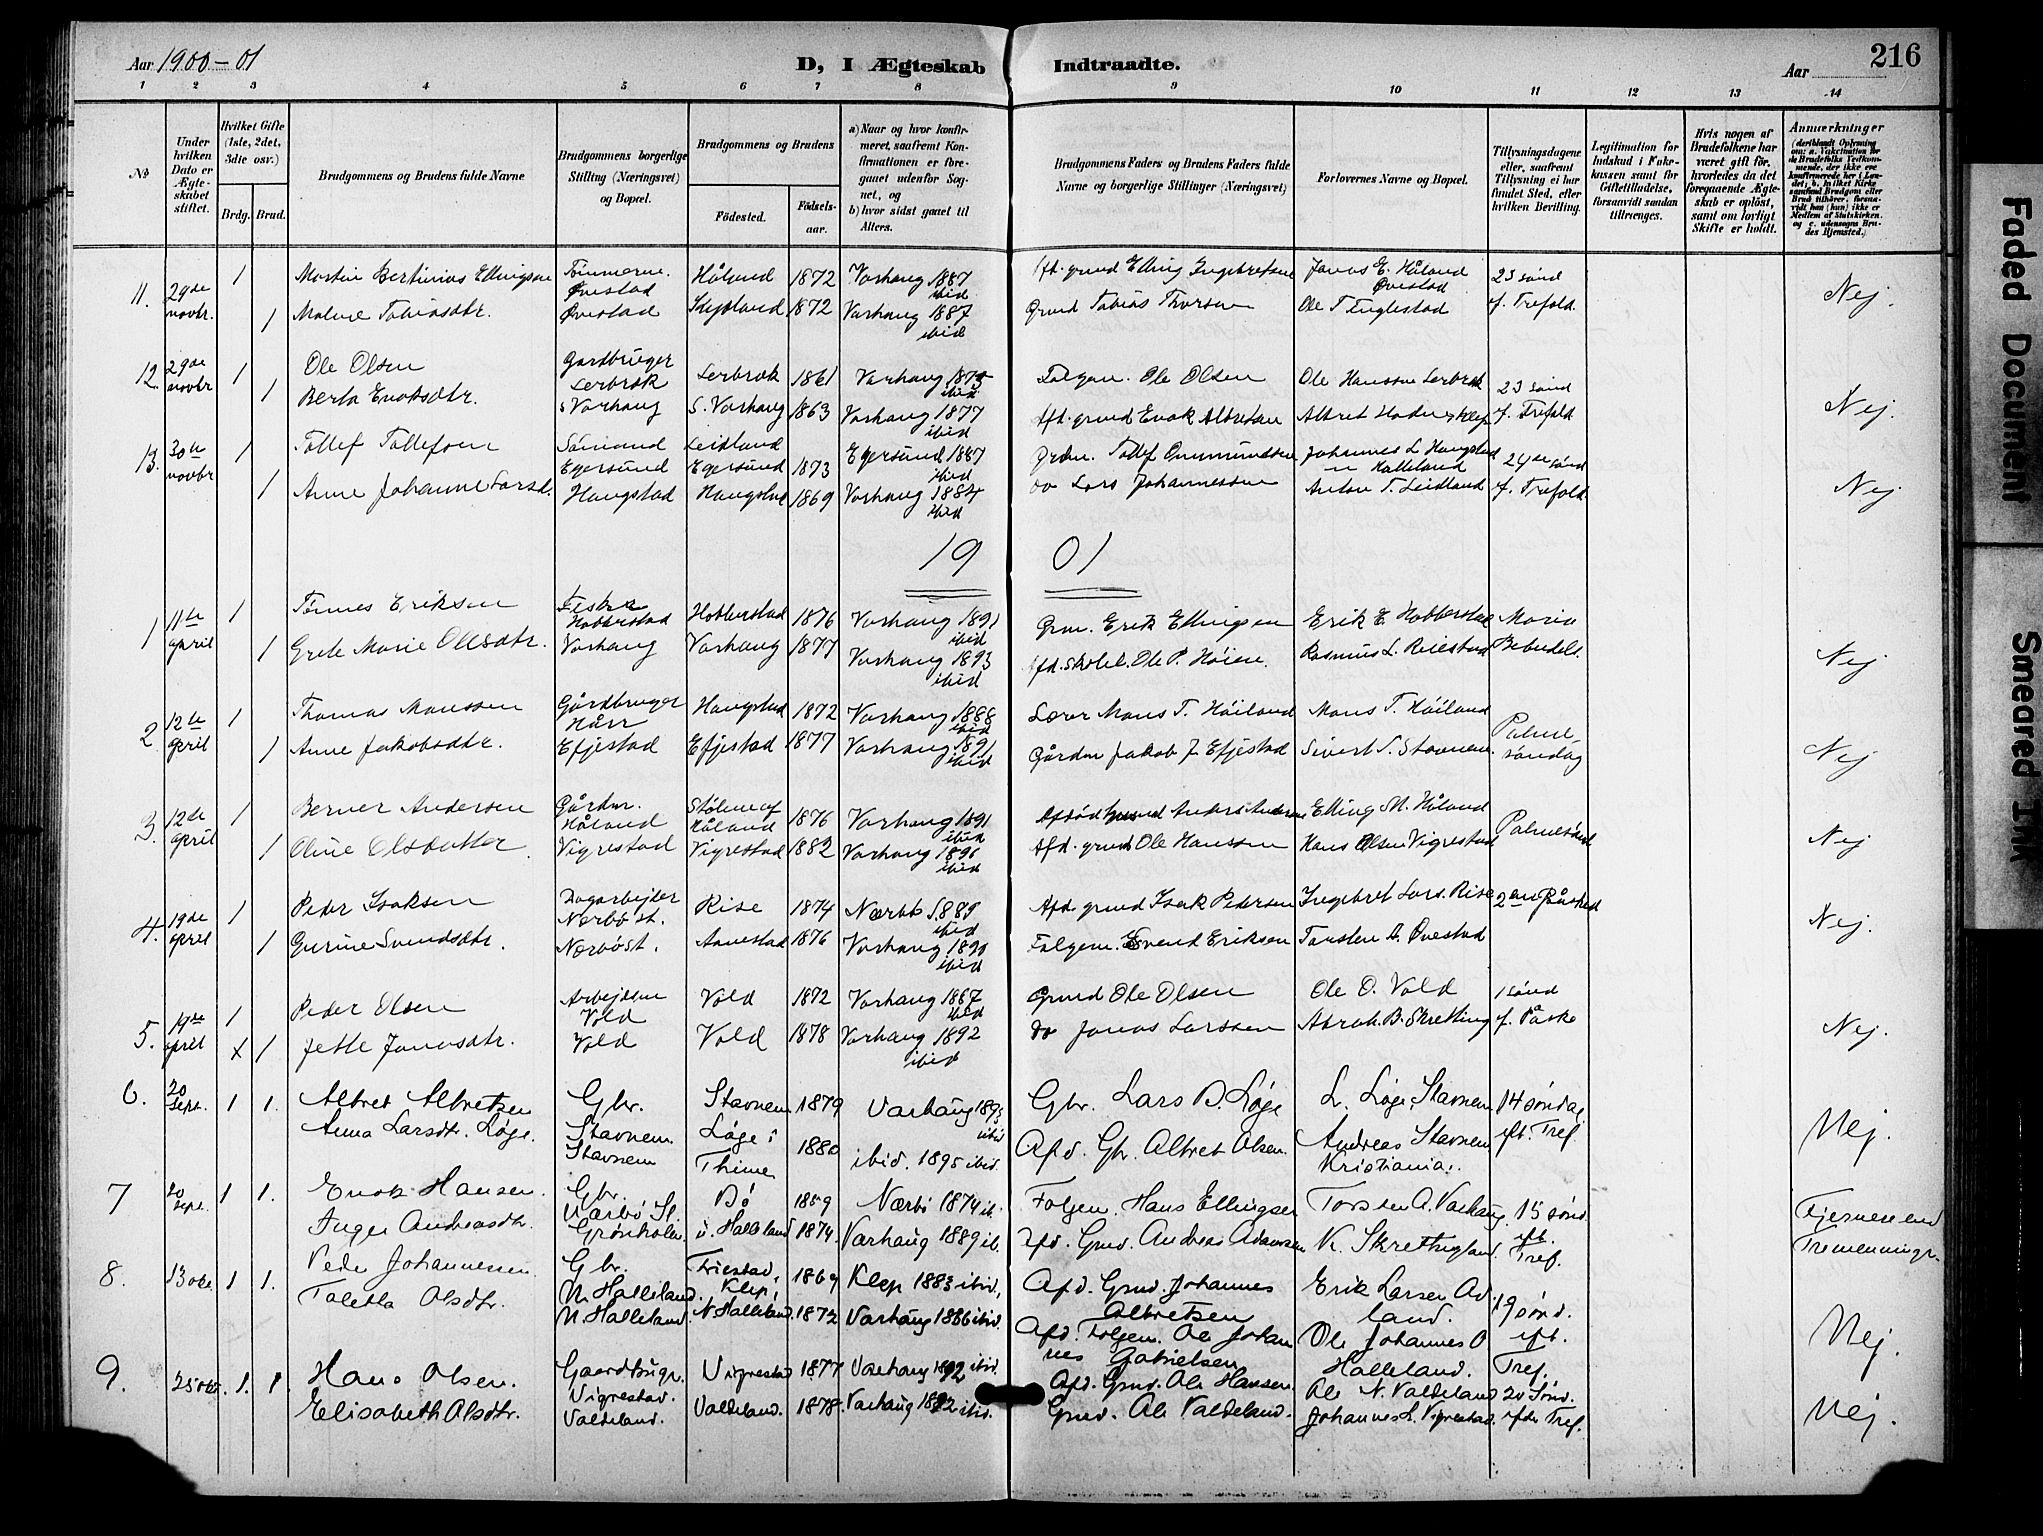 Aar 1900-01
D, I Ægteskab Indtraadte.
Aar 216
1 2 3 4 5 6 7 8 9 10 11 12 13 14
No
Under hvilken Dato er Ægteskabet stiftet.
Hvilket Gifte (1ste, 2det, 3die osv.)
Brdg. Brud.
Brudgommens og Brudens fulde Navne
Brudgommens borgerlige Stilling (Næringsvei) og Bopæl.
Brudgommens og Brudens
Fødested.
Fødselsaar.
a) Naar og hvor konfirmeret, saafremt Konfirmationen er foregaaet udenfor Sognet, og
b) hvor sidst gaaet til Alters.
Brudgommens Faders og Brudens Faders fulde Navne og borgerlige Stillinger (Næringsvei)
Forlovernes Navne og Bopæl.
Tillysningsdagene eller, saafremt Tillysning ei har fundet Sted, efter hvilken Bevilling.
Legitimation for Indskud i Enkekassen samt for Giftetilladelse, forsaavidt saadan tiltrænges.
Hvis nogen af Brudefolkene har været gift før, hvorledes da det foregaaende Ægteskab er opløst, samt om lovligt Skifte er holdt.
Anmærkninger
11. 29de novbr. 1 Martin Bertinius Ellingsen Tømmerm. Øvestad Håland 1872 Varhaug 1887 ibid. Afd. grmd Elling Ingebretsen Jonas E. Håland Øvestad 23 sønd
1 Malene Tobiasdtr. Øvestad 1872 Varhaug 1887 ibid Grmd Tobias Thorsen Ole T Englestad f. Trefold. Nej.
12. 29de novbr 1 Ole Olsen Gardbruger Lerbræk Lerbræk 1861 Varhaug 1875 ibid Folgem. Ole Olsen Ole Hansen Lerbræk 23 sønd
1 Berta Enoksdtr. S Varhaug S. Varhaug 1863 Varhaug 1877 ibid Afd. grmd Enok Albretsen f. Trefold Nej.
13. 30te novbr 1 Tollef Tollefsen Sømand Egersund Leidland Egersund 1873 Egersund 1887 ibid Grdm. Tollef Ommundsen Johannes L Haugstad Halleland 24de sønd
1 Anne Johanne Larsd. Haugstad Haugstad 1869 Varhaug 1884 ibid do Lars Johannessen Anton T. Leidland f. Trefold. Nej
19 01
1 11te april 1 Tønnes Eriksen Fisker Hobberstad Hobberstad 1876 Varhaug 1891 ibid Grm. Erik Ellingsen Erik E Hobberstad Maria
1 Grete Marie Olesdtr. Varhaug Varhaug 1877 Varhaug 1893 ibid Afd. skolel. Ole P. Høien. Rasmus L. Reiestad Bebudels. Nej
2 12te april 1 Thomas Monssen Gårdbruger Hårr Haugstad 1872 Varhaug 1888 ibid Lærer Mons T. Høiland Mons T. Høiland Palme
1 Anne Jakobsdtr. Efjestad Efjestad 1877 Varhaug 1891 ibid Gårdm Jakob J. Efjestad Sivert S. Stavnem. søndag Nej
3. 12te april 1 Berner Andersen Gårdm. Håland Stølen af Håland 1876 Varhaug 1891 ibid Elling M. Håland
1 Oline Olsdatter Vigrestad Vigrestad 1882 Varhaug 1896 ibid Afd. grmd Ole Hanssen Hans Olsen Vigrestad Palmesønd Nej
4. 19de april 1 Peder Isaksen Dagarbejder Nærbø st. Rise 1874 Nærbø 1889 ibid Afd. grmd Isak Pedersen Ingebret Lars. Rise 2den Påsked
1 Gurine Svendsdtr. Nærbø st. Aanestad 1876 Varhaug 1890 ibid Folgem. Svend Eriksen Torsten A. Øvestad Nej.
5. 19de april 1 Peder Olsen Arbejdsm Vold Vold 1872 Varhaug 1887 ibid Grmd Ole Olsen Ole O. Vold 1 sønd
x 1 Jette Jonasdtr. Vold Vold 1878 Varhaug 1892 ibid do Jonas Larssen Abrah. B. Skretting f. Påske Nej.
6. 20 Sept. 1 1. Albret Albretsen Gbr. Stavnem Stavnem 1879 Varhaug 1893 ibid Gbr. Lars B. Løge L. Løge, Stavnem 14 søndag
Anna Larsdtr. Løge. Stavnem Løge i Thime 1880 ibid. 1895 ibid. Afd. Gbr. Albret Olsen. Andreas Stavnem Kristiania. eft. Tref. Nej.
7 20 Sept. 1 1. Enok Hansen. Gbr. Nærbø St. Bø 1859 Nærbø 1874 ib. Folgem. Hans Ellingsen Torsten A. Varhaug 15 sønd
Inger Andreasdtr. Grønholen. ø. Halleland 1874 Varhaug 1889 ib. Afd. Grmd. Andreas Adamsen N. Skrettingland. eft. Tref. Fjernere end Tremenninger.
8. 13 okt. 1 1. Peder Johannessen Gbr. N. Halleland. Friestad, Klep, 1869 Klep 1883 ibid. Afd. Grmd. Johannes Albretsen Erik Larsen Adland. 19 sønd.
Taletta Olsdtr. N. Halleland. N. Halleland. 1872 Varhaug 1886 ibid. Afd. Folgem. Ole Johannes Gabrielsen Ole Johannes O Halleland. eft. Tref. Nej.
9. 25 okt. 1. 1. Hans Olsen. Gaardbrugr. Vigrestad. Vigrestad 1877 Varhaug 1892 ibid. Afd. Grmd. Ole Hansen. Ole N. Valdeland 20 Sønd.
Elisabeth Olsdtr. Valdeland. Valdeland. 1878. Varhaug 1892 ibid. Grmd. Ole Valdeland. Johannes L. Vigrestad. efter Tref. Nej.
Faded Document
Smeared Ink